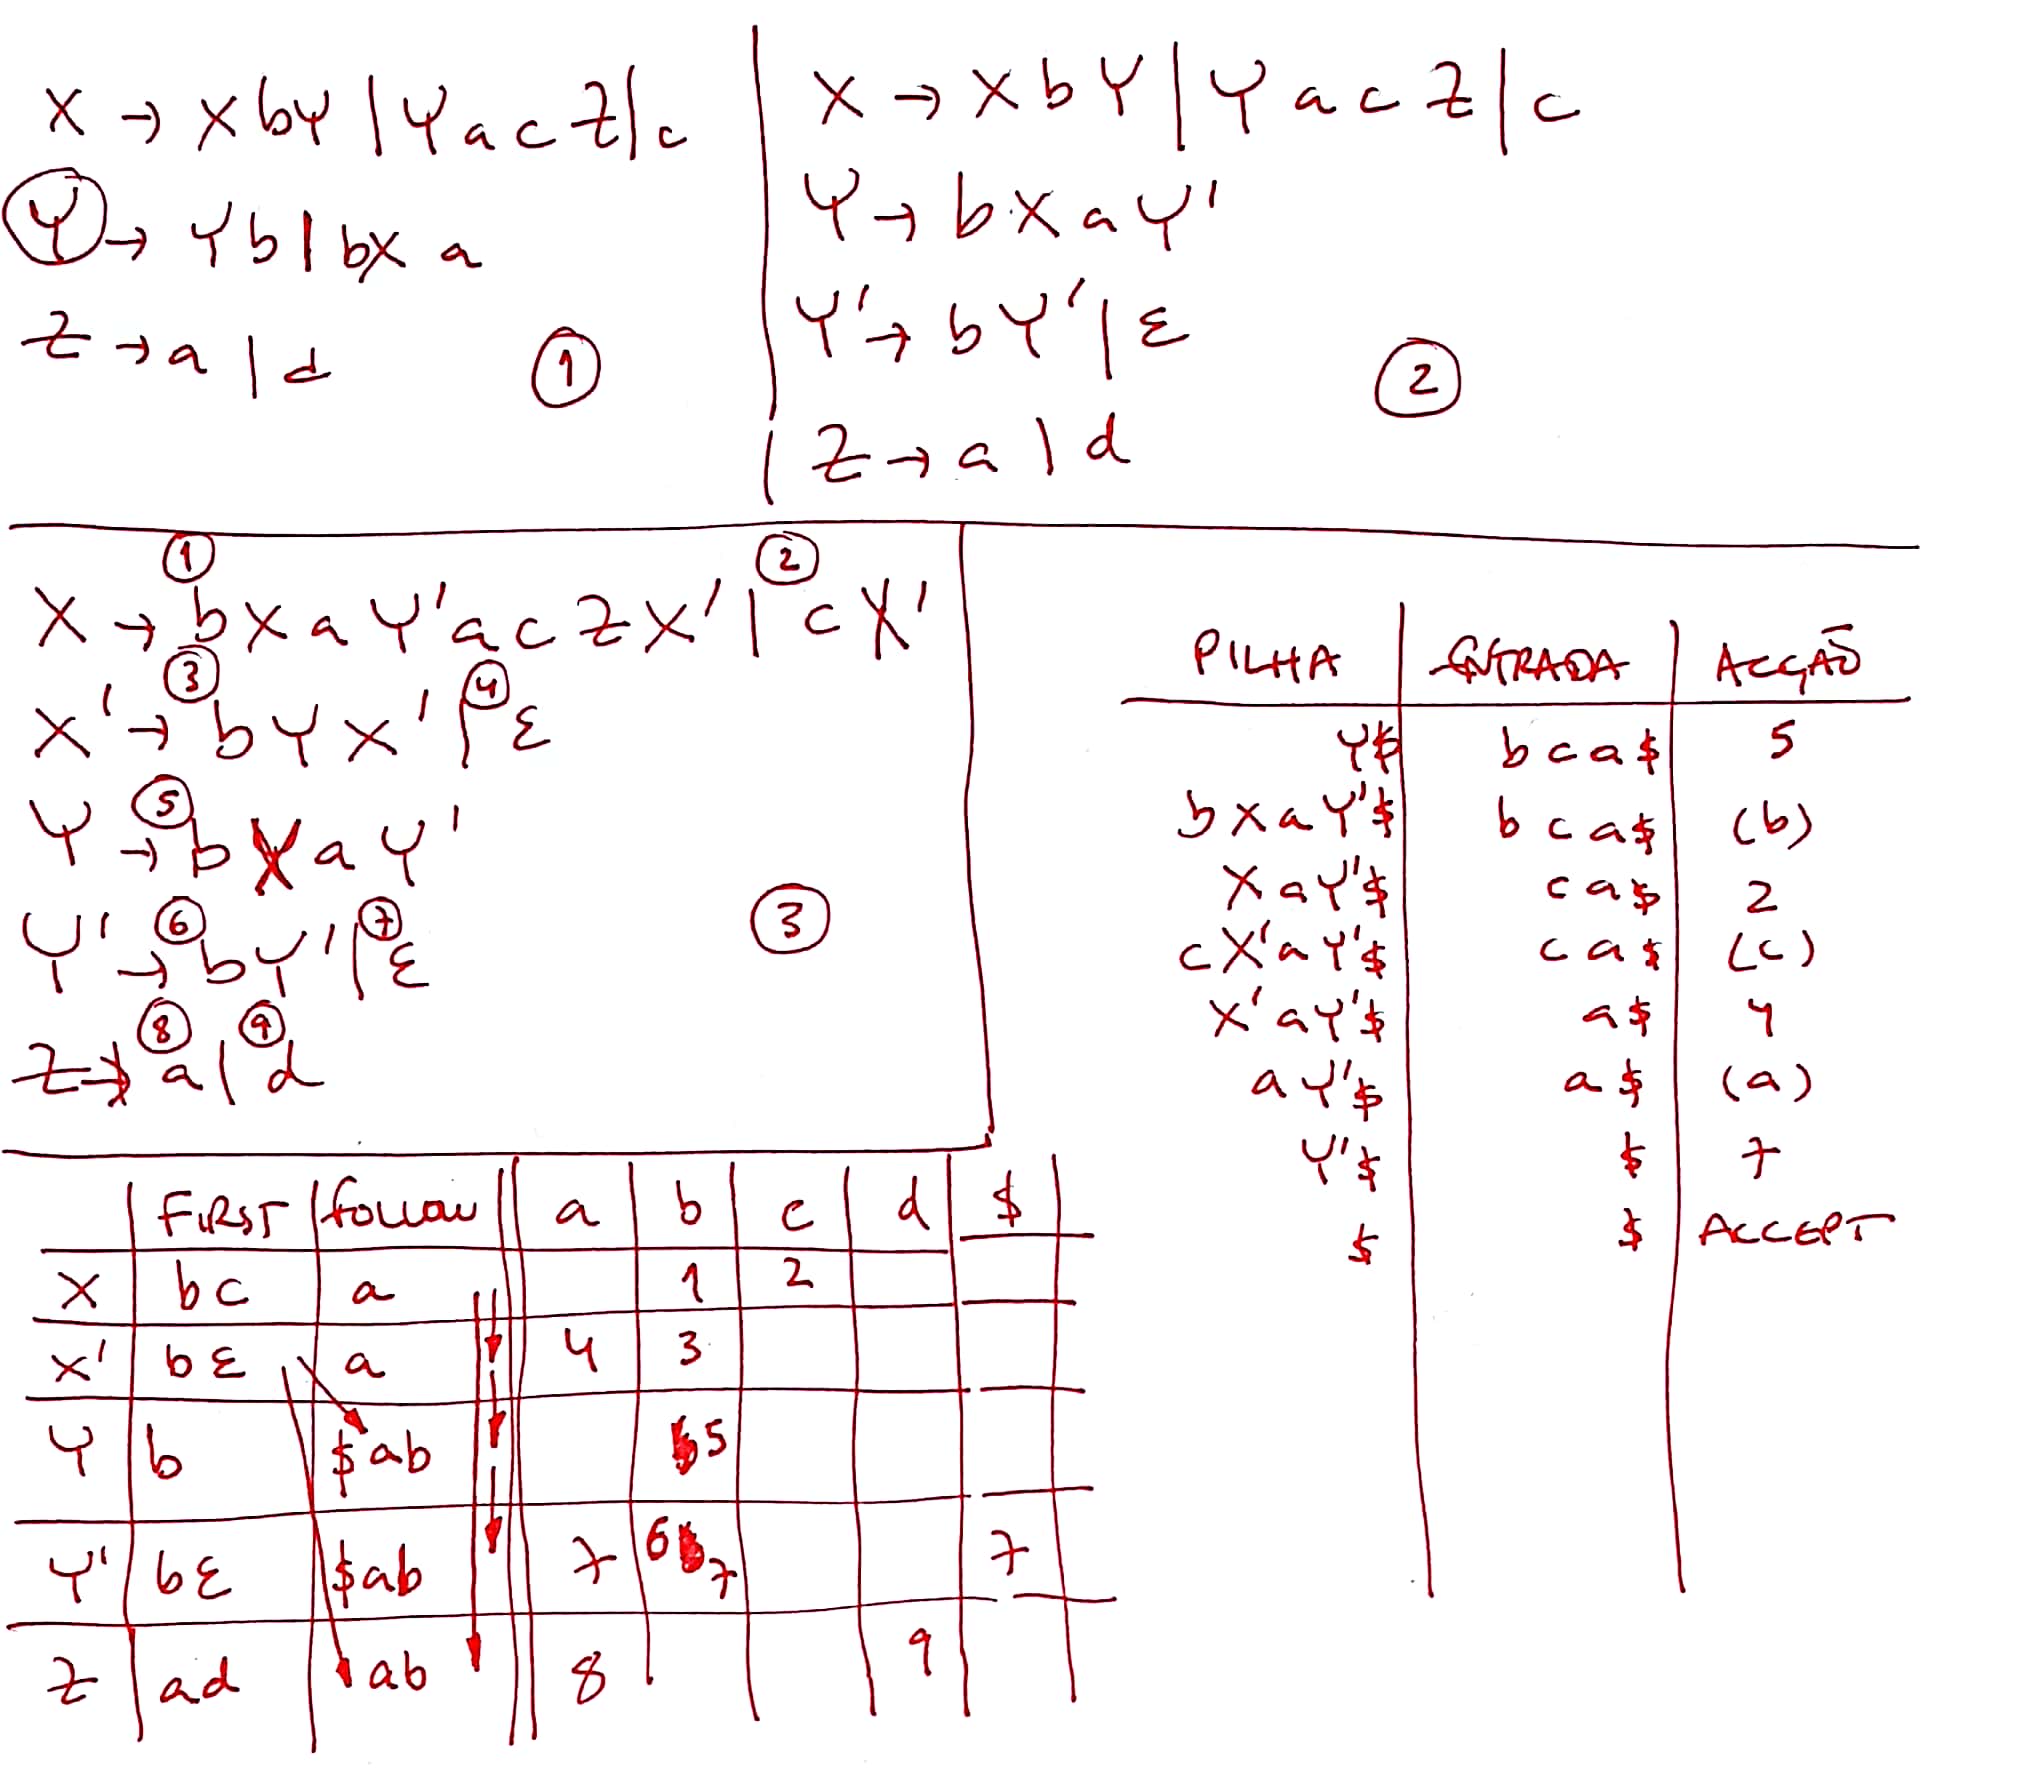 X → XbY | YacZ | c
Y → Yb | bXa
Z → a | d
1
X → XbY | YacZ | c
Y → bXaY'
Y' → bY' | ε
Z → a | d
2
1 2
X → bXaY'acZX' | cX'
3 4
X' → bYX' | ε
5
Y → bXaY'
6 7
Y' → bY' | ε
8 9
Z → a | d
3
PILHA ENTRADA ACÇÃO
Y$ bca$ 5
bXaY'$ bca$ (b)
XaY'$ ca$ 2
cX'aY'$ ca$ (c)
X'aY'$ a$ 4
aY'$ a$ (a)
Y'$ $ 7
$ $ ACCEPT
FIRST follow a b c d $
X bc a 1 2
X' bε a 4 3
Y b $ab 5
Y' bε $ab 7 6 7 7
Z ad ab 8 9